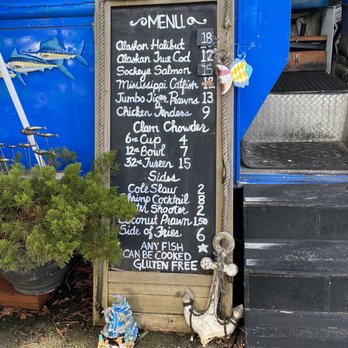 MENU
Alaskan Halibut 18
Alaskan True Cod 17
Sockeye Salmon 15
Mississippi Catfish 12
Jumbo Tiger Prawns 13
Chicken Tenders 9
Clam Chowder
6oz Cup 4
12oz Bowl 7
32oz Tureen 15
Sides
Cole Slaw 2
Shrimp Cocktail 8
Shooter 2
Coconut Prawn 1.50
Side of Fries 6
ANY FISH
CAN BE COOKED
GLUTEN FREE